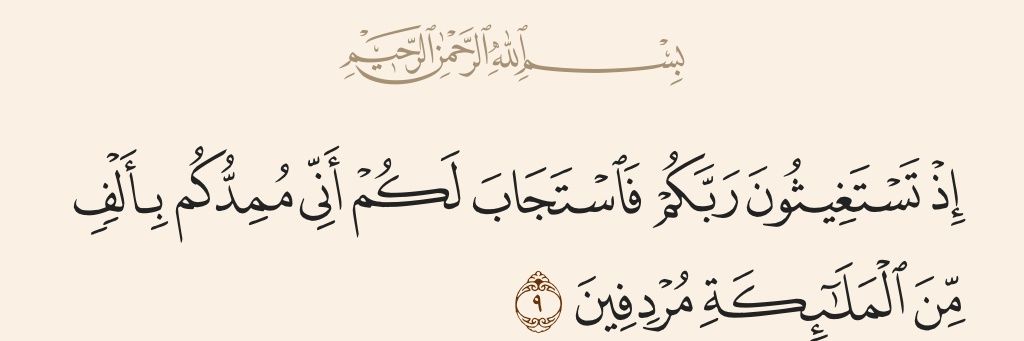 بِسْمِ ٱللَّهِ ٱلرَّحْمَٰنِ ٱلرَّحِيمِ
إِذْ تَسْتَغِيثُونَ رَبَّكُمْ فَٱسْتَجَابَ لَكُمْ أَنِّي مُمِدُّكُم بِأَلْفٍ
مِّنَ ٱلْمَلَـٰٓئِكَةِ مُرْدِفِينَ ٩